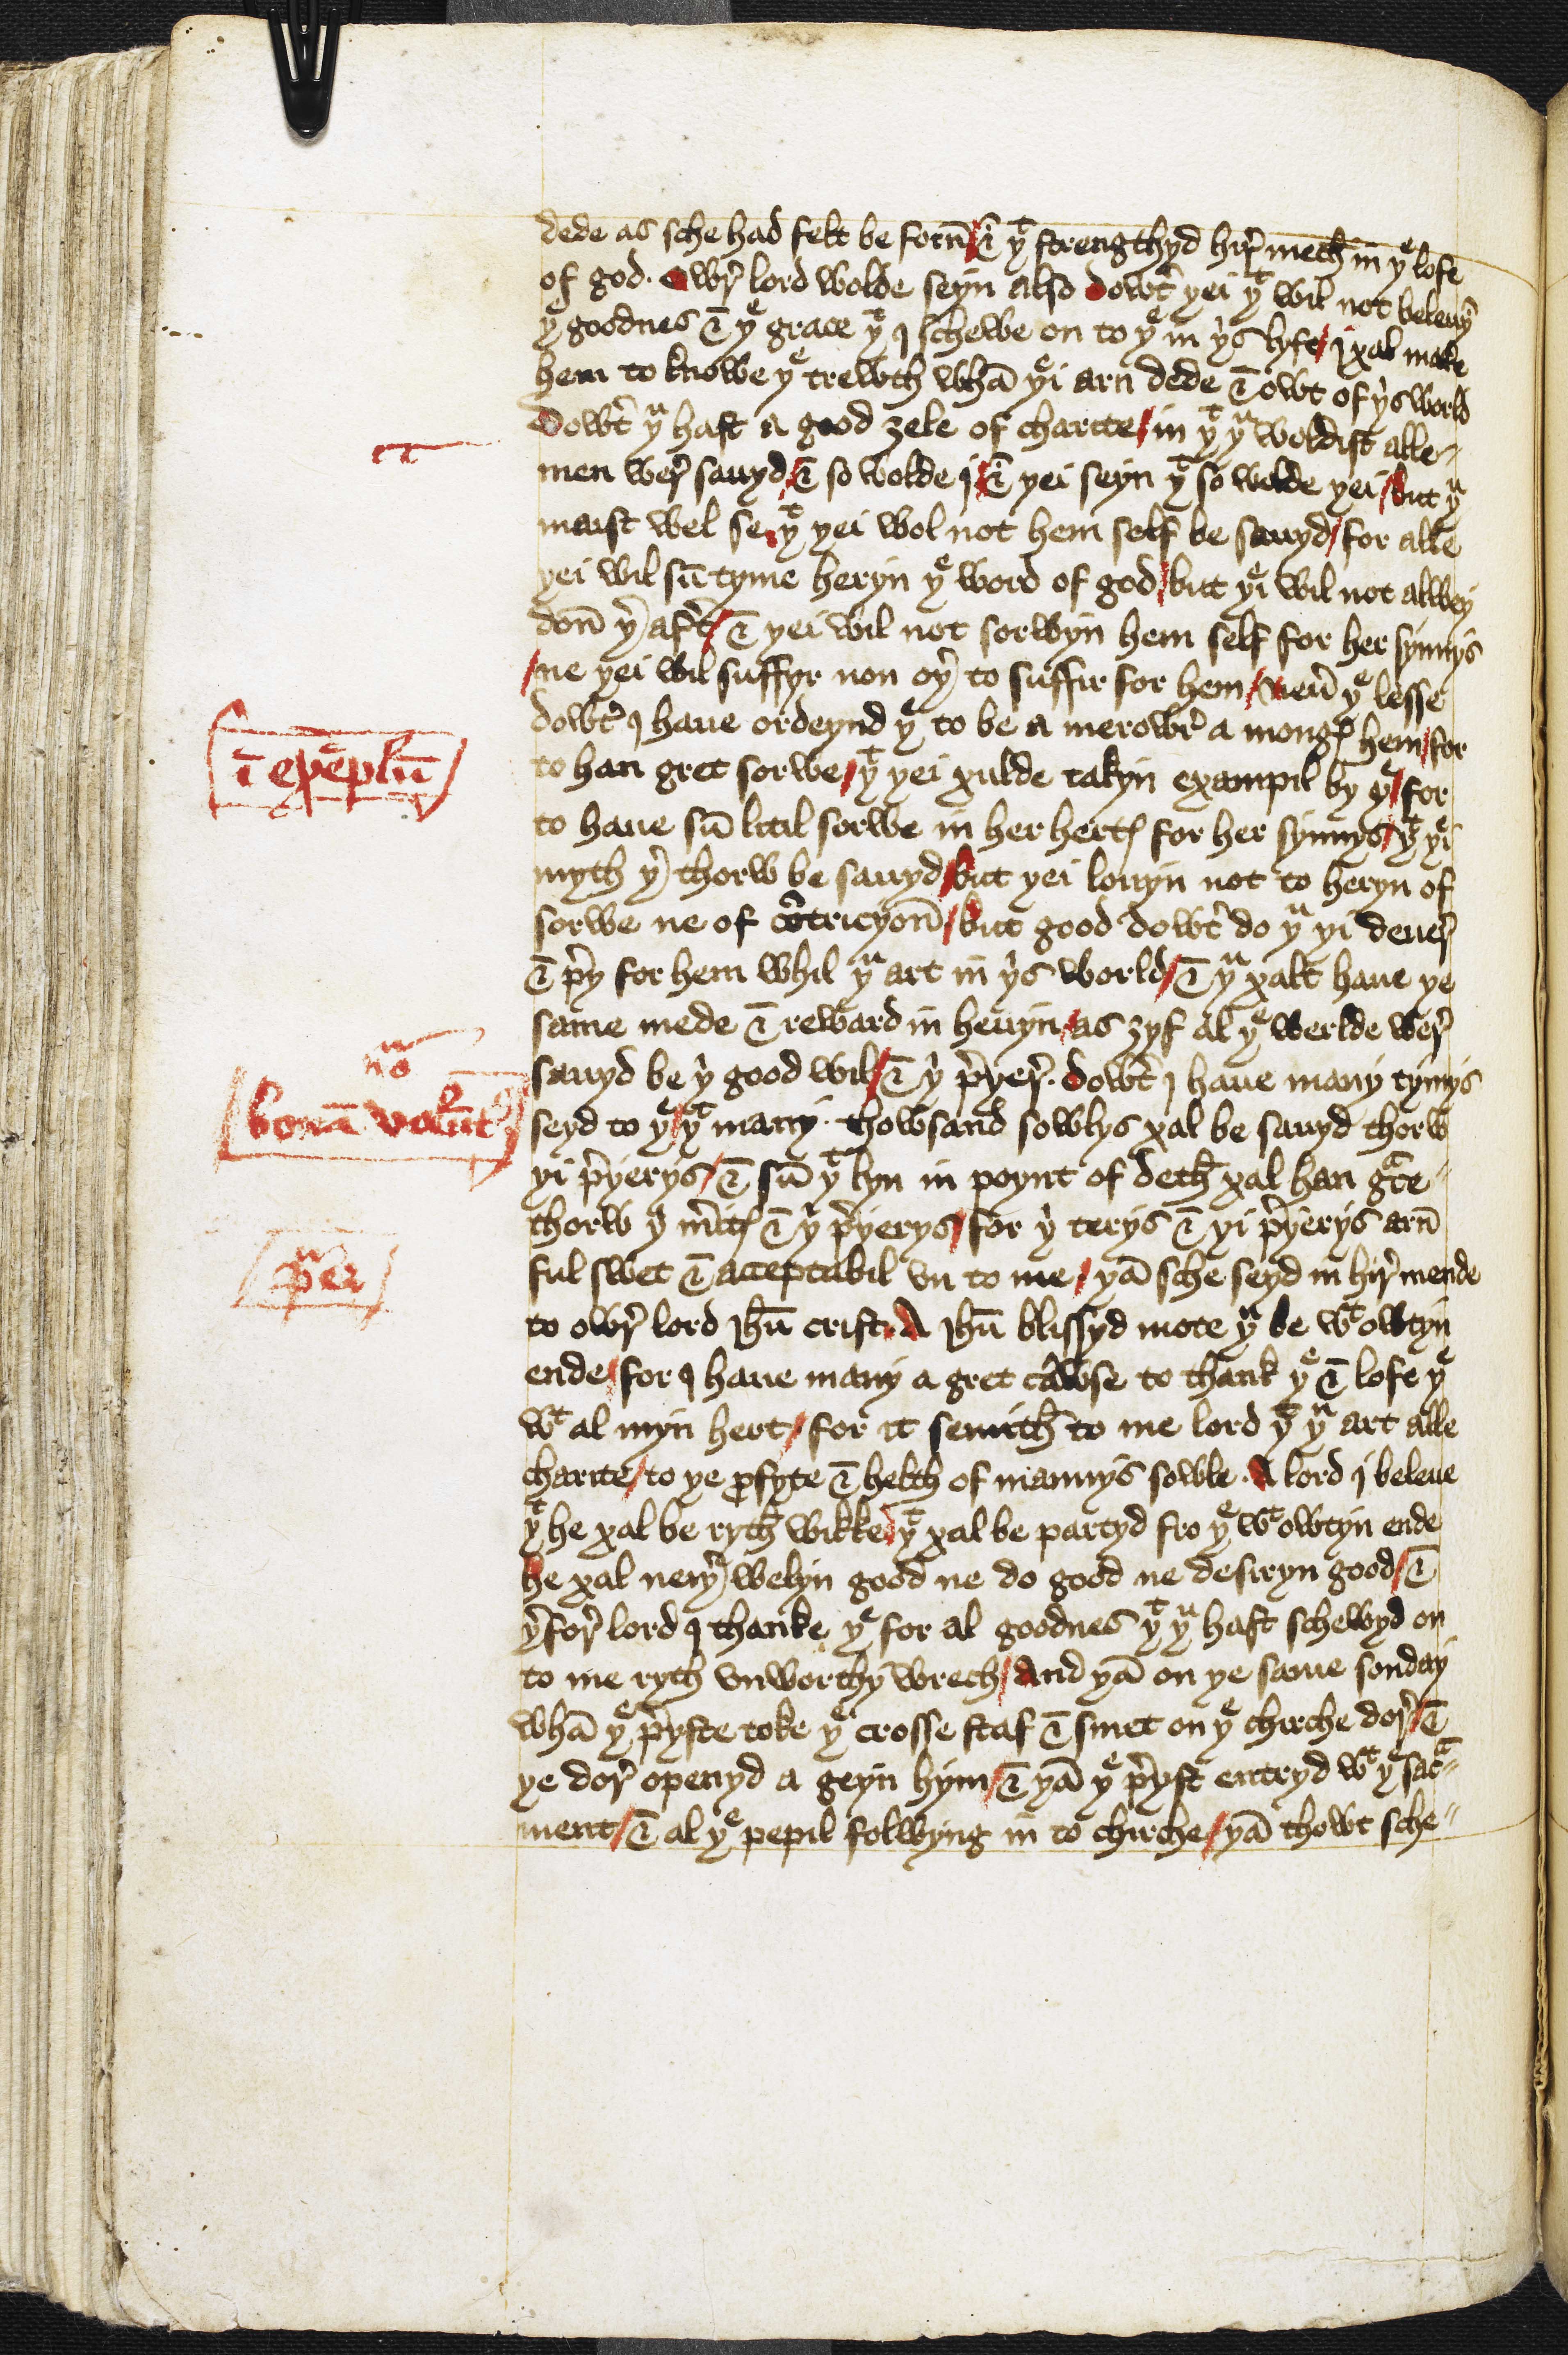 dede as sche had felt be forn̄ / & yͭ strengthyd hir̛ mech in yͤ lofe
of god. Owr̛ lord wolde seyn also dowt̛ yei yͭ wil not beleuyn̄
yͤ goodnes & yͤ grace yͭ I schewe on to yͤ in yis lyfe / I xal make
hem to knowe yͤ trewth whā yei arn dede & owt of yis world
Dowt̛ yͧ hast a good zele of charite / in yͭ yͧ woldist alle
men wer̛ sauyd / & so wolde I / & yei seyn yͭ so wolde yei / but yͧ
maist wel se / yͭ yei wol not hem self be sauyd / for alle
yei wil sū tyme heryn yͤ word of god / but yei wil not alwey
don̄ yr̛ aft̛ / & yei wil not sorwyn hem self for her synnys
/ ne yei wil suffyr non oyr̛ to suffir for hem / neư yͤ lesse
dowt̛ I haue ordeynd yͤ to be a merowr̛ a mongꝭ hem / for
ī exēplū
to han gret sorwe / yͭ yei xulde takyn exampil by yͤ / for
to haue sū litil sorwe in her hertꝭ for her synnys / yͭ yei
myth yr̛ thorw be sauyd / but yei louyn not to heryn of
sorwe ne of cōtricyon̄ / but good dowt̛ do yͧ yi deuer̛
& p̛y for hem whil yͧ art in yis world / & yͧ xalt haue ye
same mede & reward in heuyn / as zyf al yͤ werlde wer̛
nͣō
sauyd be yi good wil / & yi p̛yer̛. Dowt̛ I haue many tymys
bonā volūt̛
seyd to yͤ / yͭ many thowsand sowlys xal be sauyd thorw
yi p̛yerys / & sū yͭ lyn in poynt of deth xal han gͣce
thorw yi m̛itꝭ & yi p̛yerys / for yi terys & yi p̛yerys arn̄
ful swet & acceptabil vn to me / yā sche seyd in hir̛ mende
to owr̛ lord ihū crist. A ihū blissyd mote yͧ be wͭ owtyn
ende / for I haue many a gret cawse to thank yͤ & lofe yͤ
wͭ al myn hert / for it semith to me lord yͭ yͧ art alle
charite / to ye ꝓfyte & helth of mannys sowle. A lord I beleue
yͭ he xal be ryth wikke / yͭ xal be partyd fro yͤ wͭ owtyn ende
he xal neyr̛ welyn good ne do good ne desiryn good / &
yr̛for̛ lord I thanke yͤ for al goodnes yͭ yͧ hast schewyd on
to me ryth vnworthy wrech / And yā on ye same sonday
whā yͤ p̛yste toke yͤ crosse staf & smet on yͤ chirche dor̛ / &
ye dor̛ openyd a geyn hym / & yā yͤ p̛yst entryd wͭ yͤ sacͣ
ment / & al yͤ pepil folwyng in to chirche / yā thowt sche